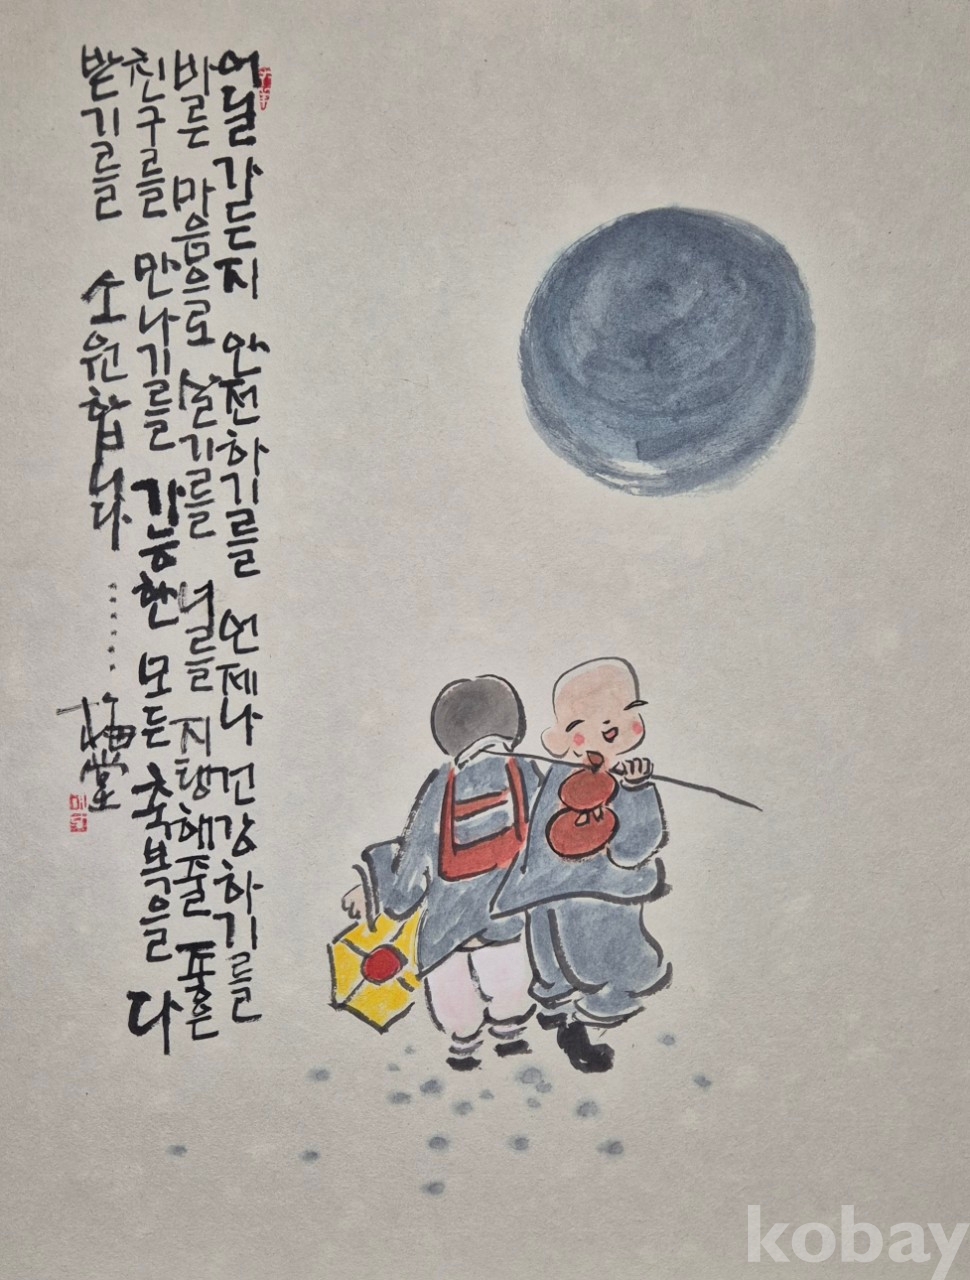 어딜가든지 안전하기를 언제나 건강하기를
바른 마음으로 살기를 너를 지탱해줄 좋은
친구를 만나기를 가능한 모든 축복을 다
받기를 소원합니다.......
梅堂
kobay